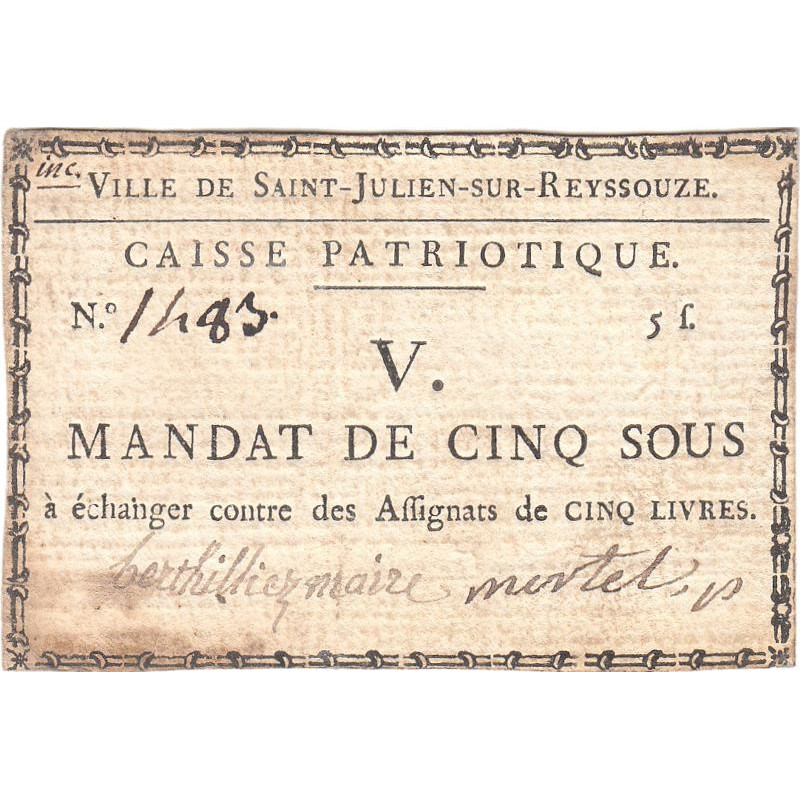 inc.
VILLE DE SAINT-JULIEN-SUR-REYSSOUZE.
CAISSE PATRIOTIQUE.
N.º 1483. 5 ſ.
V.
MANDAT DE CINQ SOUS
à échanger contre des Aſſignats de CINQ LIVRES.
berthilliez maire mortel